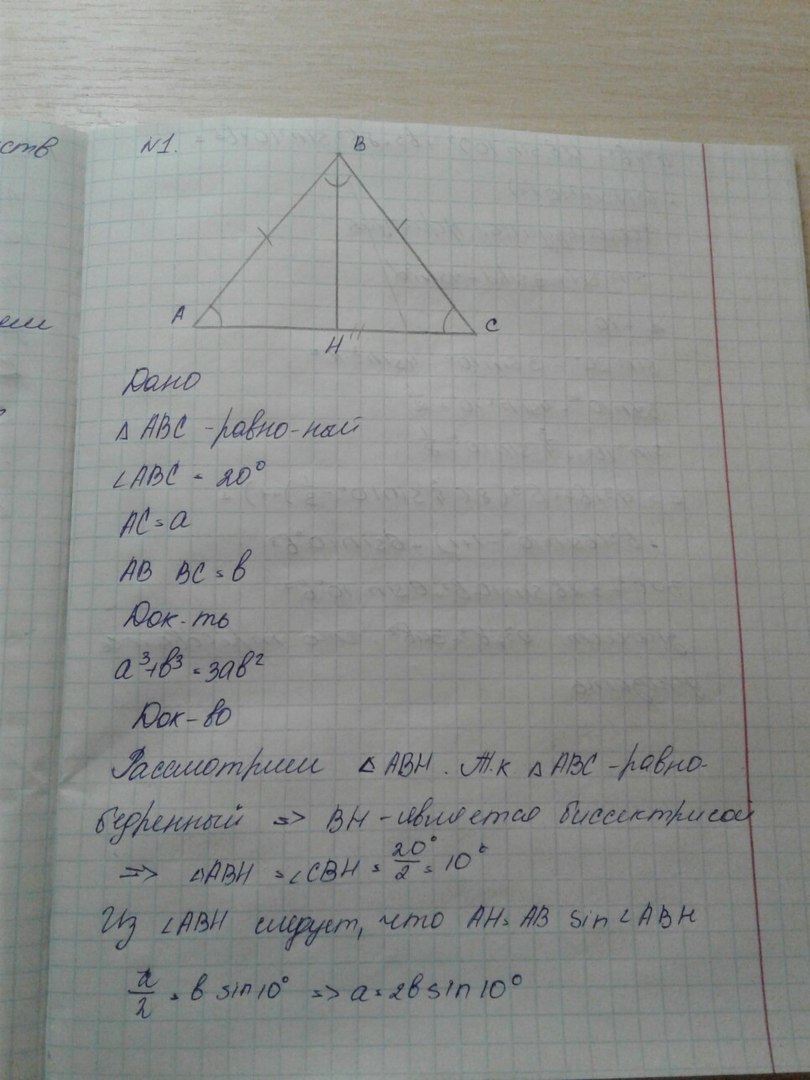 ств
N1.
B
A
C
H
Дано
△ ABC - равно-ный
∠ABC = 20°
AC = a
AB BC = в
Док-ть
a³+в³ = 3aв²
Док-во
Рассмотрим △ ABH. Т.к △ ABC - равно-
бедренный => BH - является биссектрисой
=> △ABH = ∠CBH = 20°/2 = 10°
Из ∠ABH следует, что AH = AB sin ∠ABH
a/2 = в sin 10° => a = 2в sin 10°